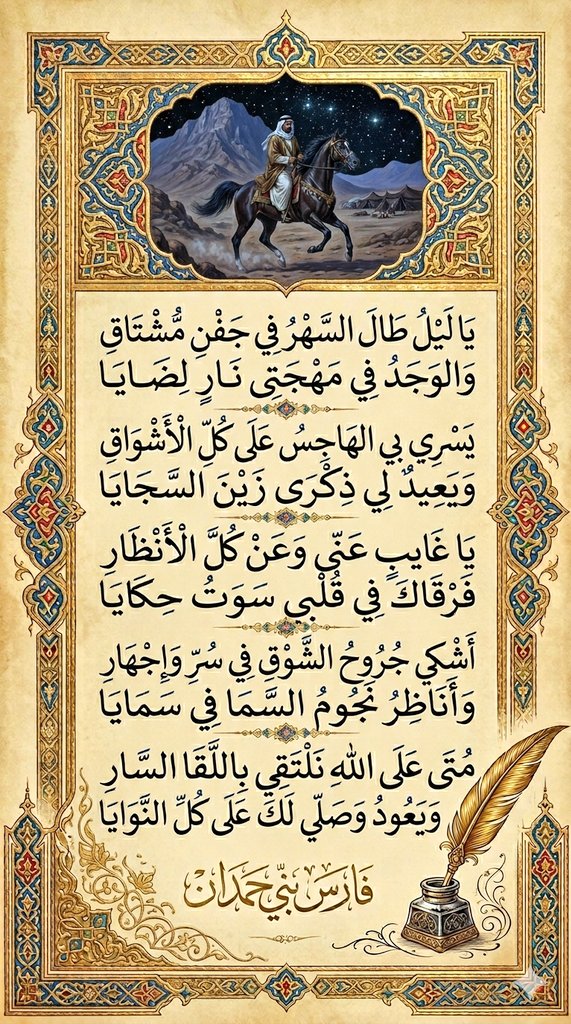 يَا لَيْلُ طَالَ السَّهْرُ فِي جَفْنِ مُّشْتَاقِ
وَالوَجَدُ فِي مَهْجَتِى نَـارٍ لِضَـايَـا
يَسْرِي بي الهَاجِسُ عَلَى كُلِّ الْأَشْوَاقِ
وَيَعِيدٌ لِي ذِكْرَى زَيْنَ السَّجَايَا
يَا غَايبٍ عَنّى وَعَنْ كُلَّ الْأَنْظَارِ
فَرْقَاكَ فِي قُلْبي سَوَتُ حِكَايَا
أَشْكي جُرُوحُ الشَّوْقِ فِي سُرِّ وَإِجْهَارِ
وَأَنَاظِرُ نَجُومُ السَّمَا فِي سَمَايَا
مُتَى عَلَى اللهِ نَلْتَقِي بِاللَّقَا السَّارِ
وَيَعُودُ وَصَلّي لَكَ عَلَى كُلِّ النَّوَايَا
فَارَسَ بَنّي حَمَدَانْ